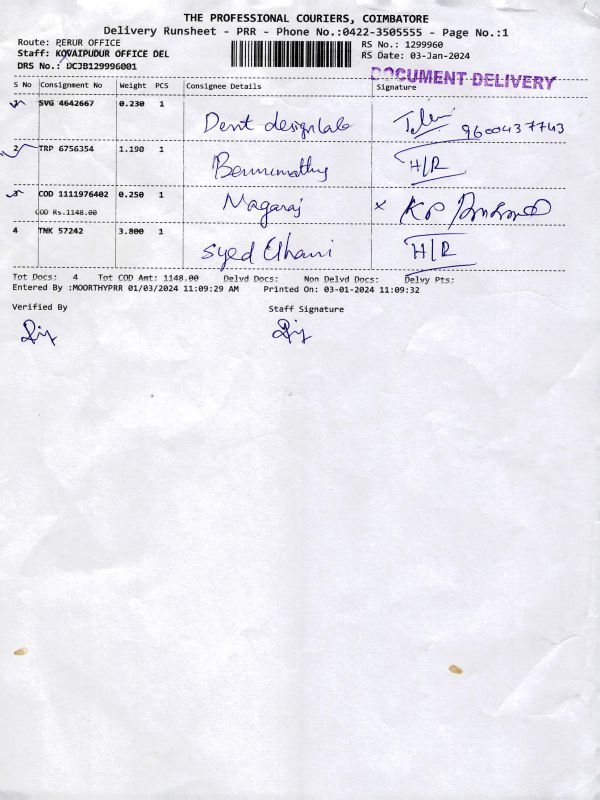 THE PROFESSIONAL COURIERS, COIMBATORE
Delivery Runsheet - PRR - Phone No.:0422-3505555 - Page No.:1
Route: PERUR OFFICE
RS No.: 1299960
Staff: KOVAIPUDUR OFFICE DEL
RS Date: 03-Jan-2024
DRS No.: DCJB129996001
DOCUMENT DELIVERY
S No Consignment No Weight PCS Consignee Details Signature
1 SVG 4642667 0.230 1 Dent designlab 9600437743
2 TRP 6756354 1.190 1 H/R
3 COD 1111976402 0.250 1 Nagaraj x
COD Rs.1148.00
4 TNK 57242 3.800 1 Syed H/R
Tot Docs: 4 Tot COD Amt: 1148.00 Delvd Docs: Non Delvd Docs: Delvy Pts:
Entered By :MOORTHYPRR 01/03/2024 11:09:29 AM Printed On: 03-01-2024 11:09:32
Verified By Staff Signature